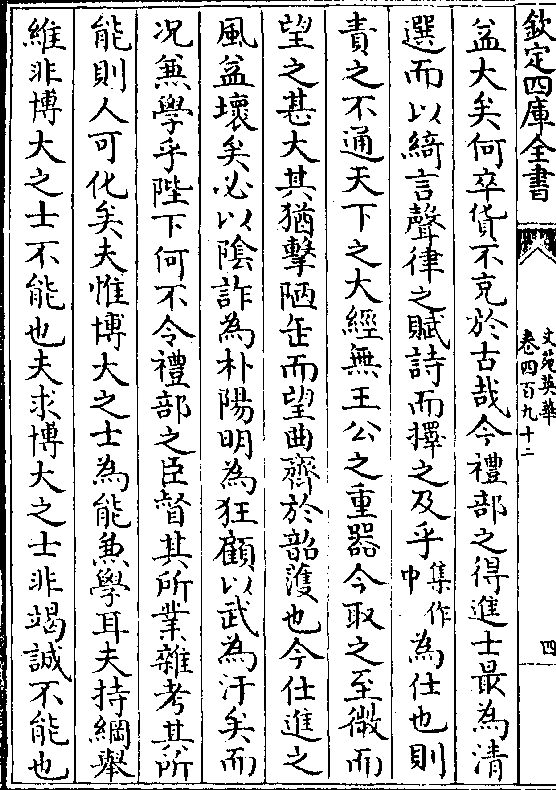 欽定四庫全書
文苑英華
卷四百九十二
四
益大矣何卒貨不克於古哉今禮部之得進士最為清
選而以綺言聲律之賦詩而擇之及乎集作中為仕也則
責之不通天下之大經無王公之重器今取之至微而
望之甚大其猶擊陋缶而望曲齊於韶濩也今仕進之
風益壞矣必以陰詐為朴陽明為狂顧以武為汗矣而
况兼學乎陛下何不令禮部之臣督其所業雜考其所
能則人可化矣夫惟博大之士為能兼學耳夫持綱舉
維非博大之士不能也夫求博大之士非竭誠不能也